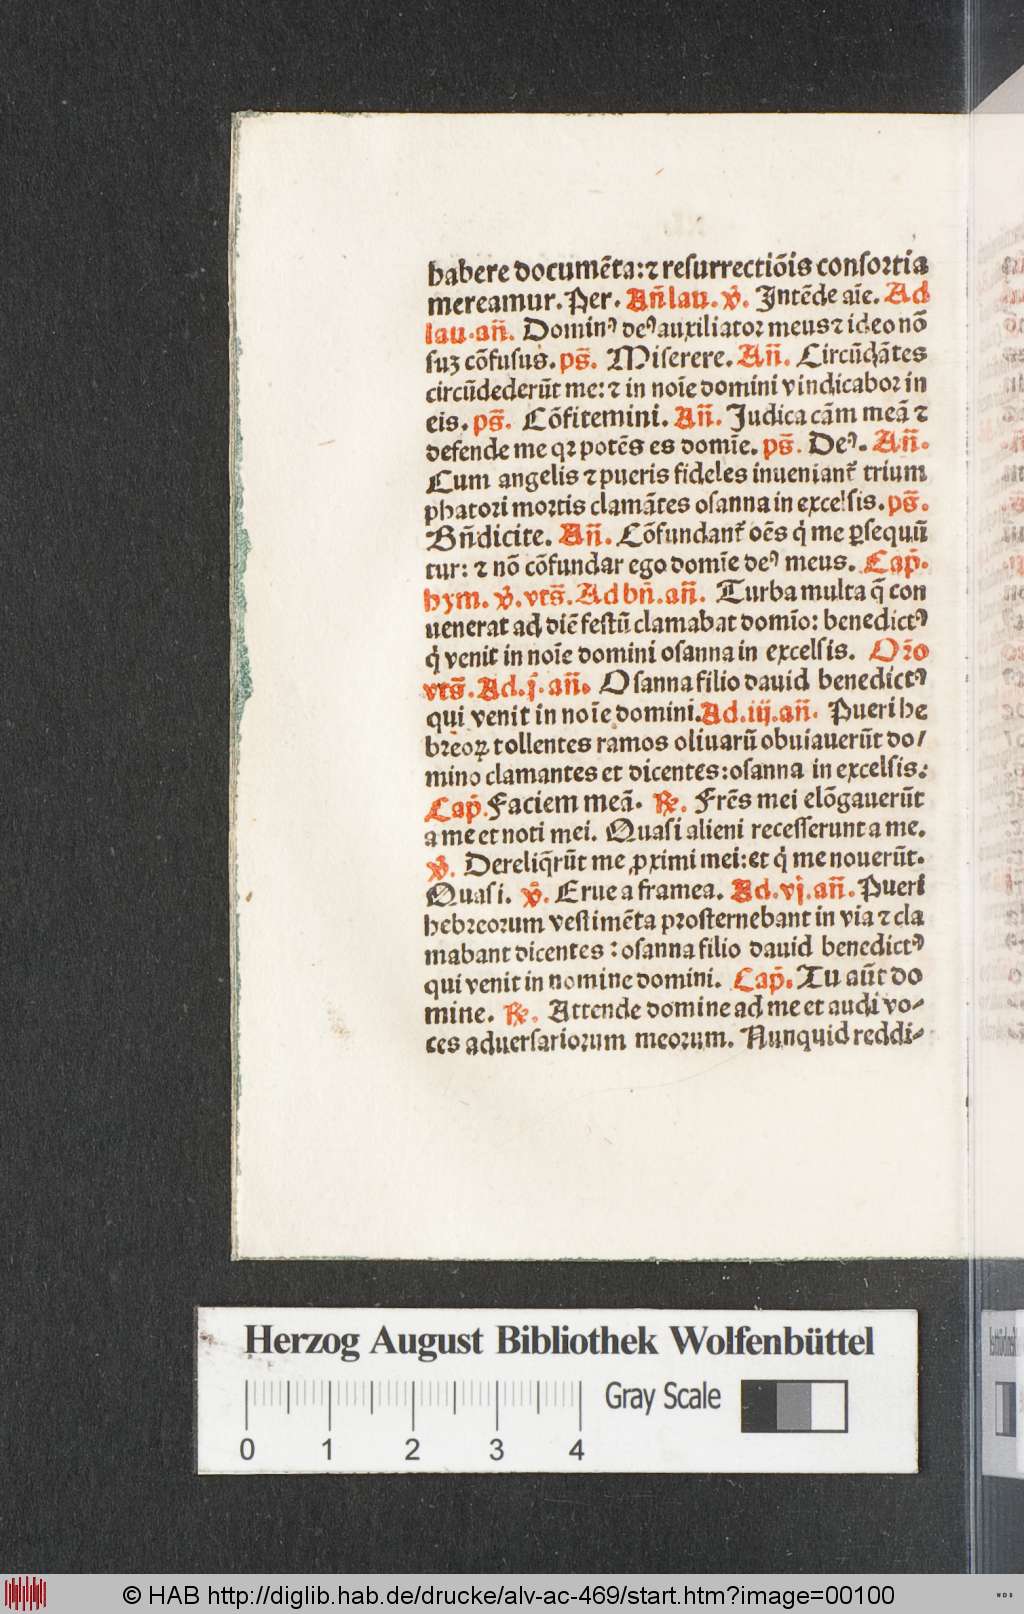 habere documēta:⁊ resurrectiōis consortia
mereamur. Per. Añ lau. v̄. Intēde aīe. Ad
lau. añ. Dominꝰ deꝰ auxiliator meus ⁊ ideo nō
suꝫ cōfusus. ps̄. Miserere. Añ. Circūdātes
circūdederūt me: ⁊ in noīe domini vindicabor in
eis. ps̄. Cōfitemini. Añ. Judica cām meā ⁊
defende me qꝛ potēs es domīe. ps̄. Deꝰ. Añ.
Cum angelis ⁊ pueris fideles inueniant̄ trium
phatori mortis clamātes osanna in excelsis. ps̄.
Bn̄dicite. Añ. Cōfundant̄ oēs q̇ me ꝑsequū
tur: ⁊ nō cōfundar ego domīe deꝰ meus. Cap̄.
hym. v̄. vts̄. Ad bn̄. añ. Turba multa q̄ con
uenerat ad diē festū clamabat domīo: benedictꝰ
q̇ venit in noīe domini osanna in excelsis. Or̄o
vts̄. Ad. j. añ. Osanna filio dauid benedictꝰ
qui venit in noīe domini. Ad. iij. añ. Pueri he
breoꝝ tollentes ramos oliuarū obuiauerūt do/
mino clamantes et dicentes: osanna in excelsis:
Cap̄. Faciem meā. ℟. Frēs mei elōgauerūt
a me et noti mei. Quasi alieni recesserunt a me.
v̄. Dereliq̄rūt me ꝓximi mei: et q̇ me nouerūt.
Quasi. v̄. Erue a framea. Ad. vj. añ. Pueri
hebreorum vestimēta prosternebant in via ⁊ cla
mabant dicentes : osanna filio dauid benedictꝰ
qui venit in nomine domini. Cap̄. Tu aūt do
mine. ℟. Attende domine ad me et audi vo/
ces aduersariorum meorum. Nunquid reddi/
Herzog August Bibliothek Wolfenbüttel
Gray Scale
0 1 2 3 4
© HAB http://diglib.hab.de/drucke/alv-ac-469/start.htm?image=00100